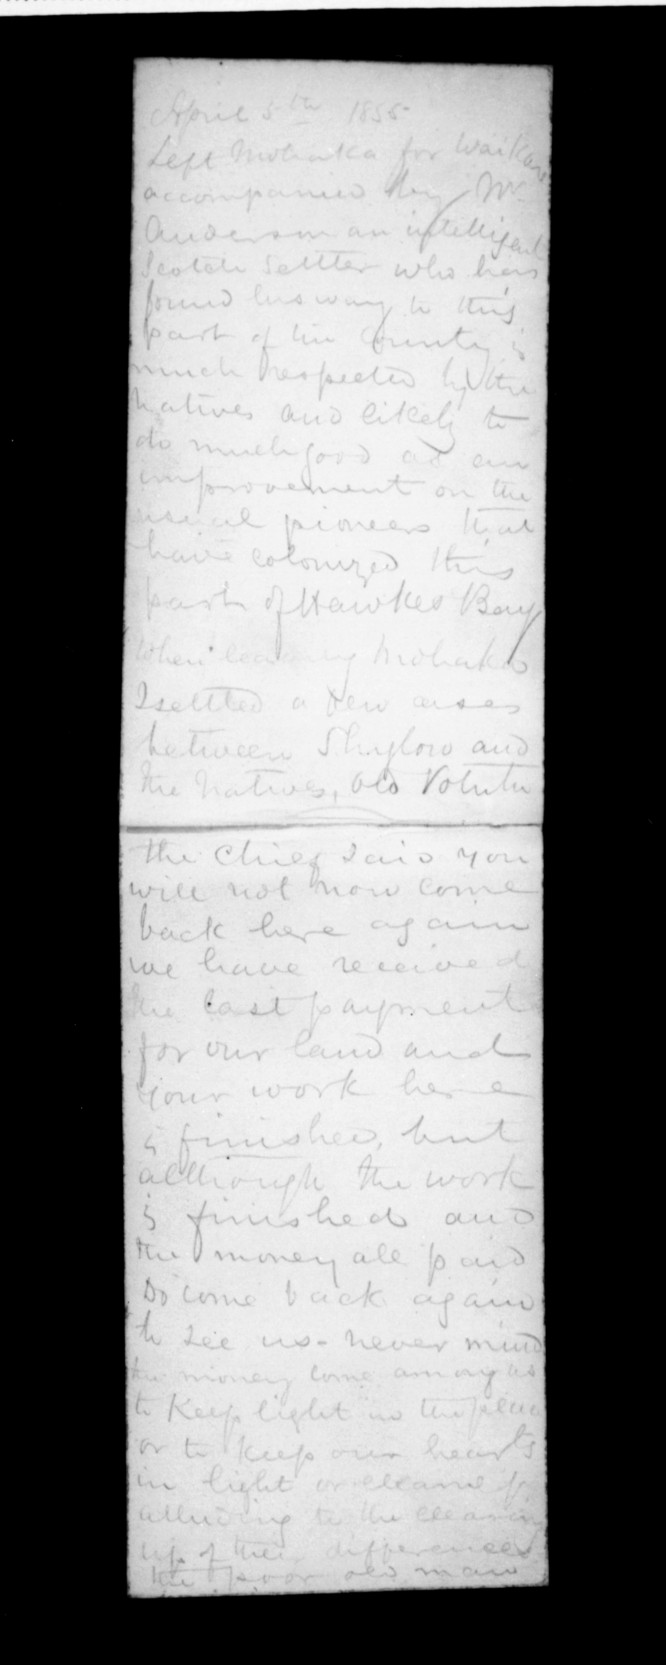 April 5th 1855
Left Mohaka for Waikare
accompanied by Mr.
Anderson an intelligent
Scotch Settler who has
found his way to this
part of the County is
much respected by the
natives and likely to
do much good as an
improvement on the
usual pioneers that
have colonized this
part of Hawkes Bay
When leaving Mohaka
I settled a few cases
between and
the Natives, Old
the Chief said you
will not now come
back here again
we have received
the last payment
for our land and
your work here
is finished, but
although the work
is finished and
the money all paid
Do come back again
to see us - never mind
the money come among us
to Keep light in the place
or to keep our hearts
in light or
alluding to the clearing
up of their differences
the poor old man